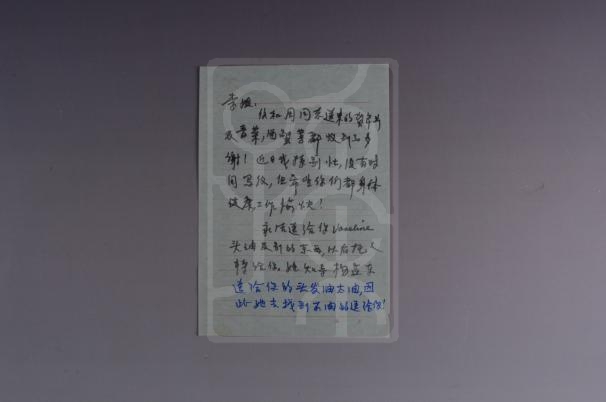 李姐：
你和周同志送来的贺年片
及香菜，酒，蟹等都收到了多
谢！近日我特别忙，没有时
间写信，但希望你们都身体
健康，工作愉快！
送给你Vaseline
头油及别的东西，以后托人
转给你。她知
送给你的头发油太油，因
此她去找到不油的送给你！